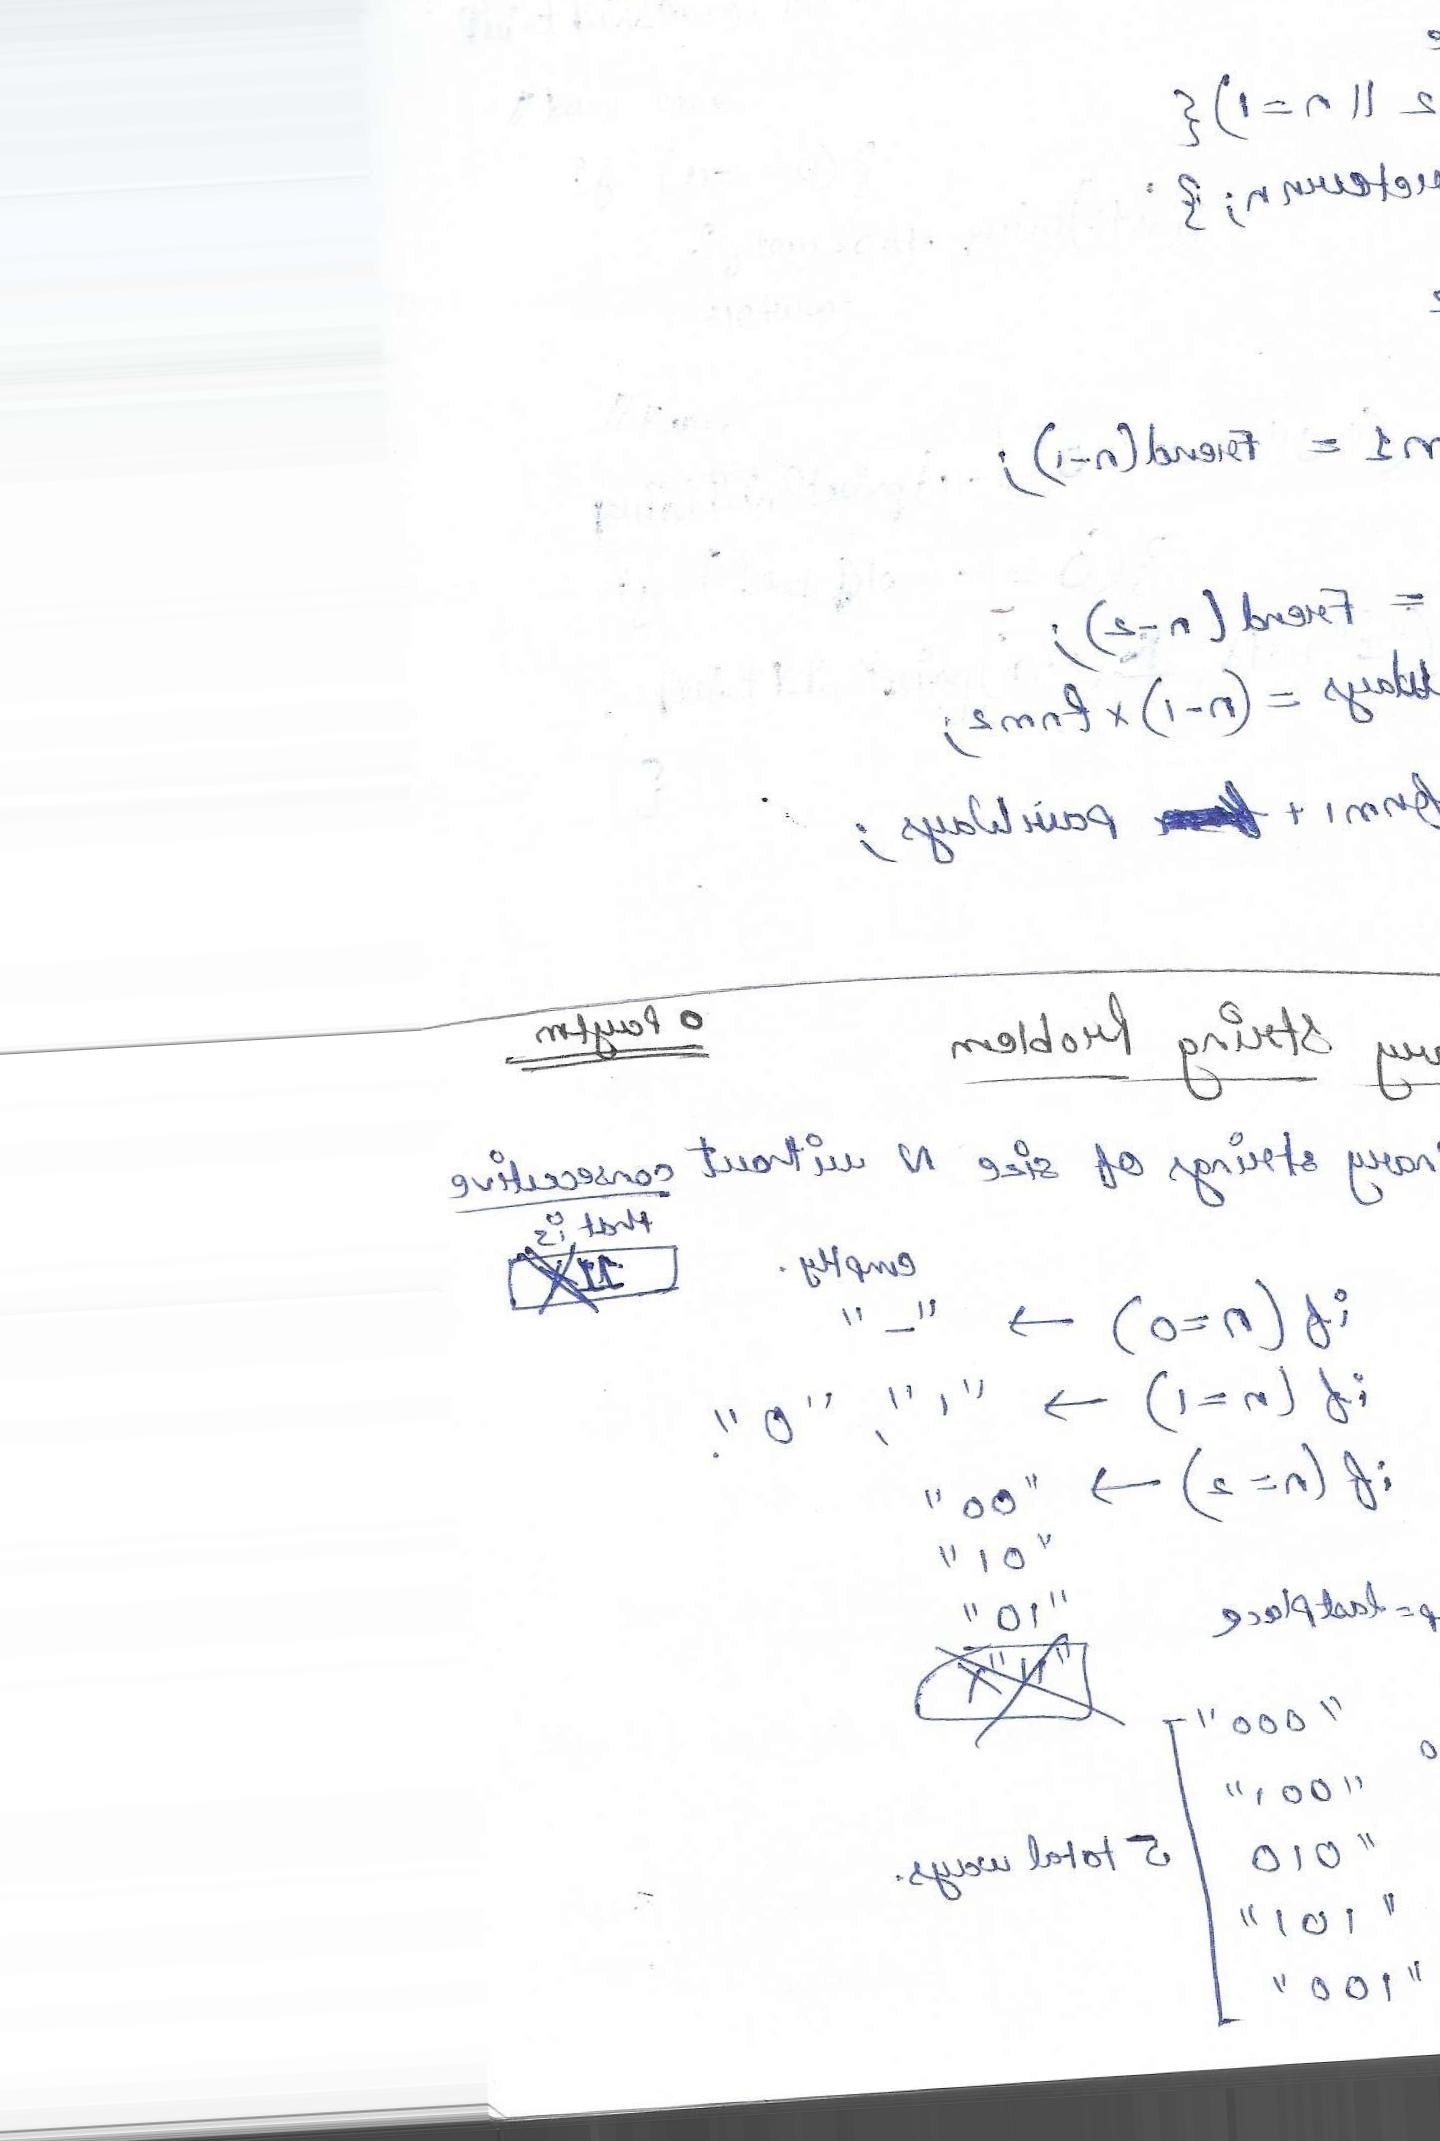 e
2 || n=1) {
return n; }
2
m1 = Friend(n-1);
= Friend(n-2);
Ways = (n-1) x fnm2;
fnm1 + pairWays;
ary String Problem o Paytm
nary strings of size N without consecutive
that is
11
empty.
if (n=0) → "_"
if (n=1) → "1", "0".
if (n=2) → "00"
"01"
"10"
"11" X
p = lastplace
"000"
0
"001"
"010 5 total ways.
"101"
"100"